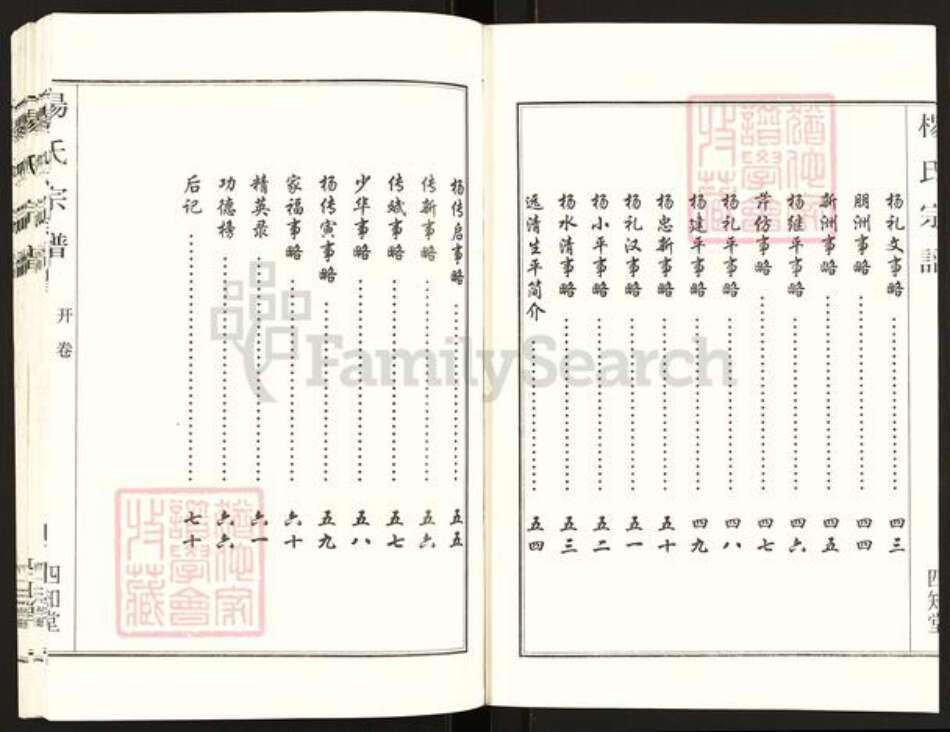 杨氏宗谱
四知堂
杨礼文事略 四三
朋洲事略 四四
新洲事略 四五
杨继平事略 四六
芹仿事略 四七
杨礼平事略 四八
杨建平事略 四九
杨忠新事略 五十
杨礼汉事略 五一
杨小平事略 五二
杨水清事略 五三
远清生平简介 五四
杨传启事略 五五
传新事略 五六
传斌事略 五七
少华事略 五八
杨传寅事略 五九
家福事略 六十
精英录 六一
功德榜 六六
后记 七十
杨氏宗谱
开卷
四知堂
FamilySearch